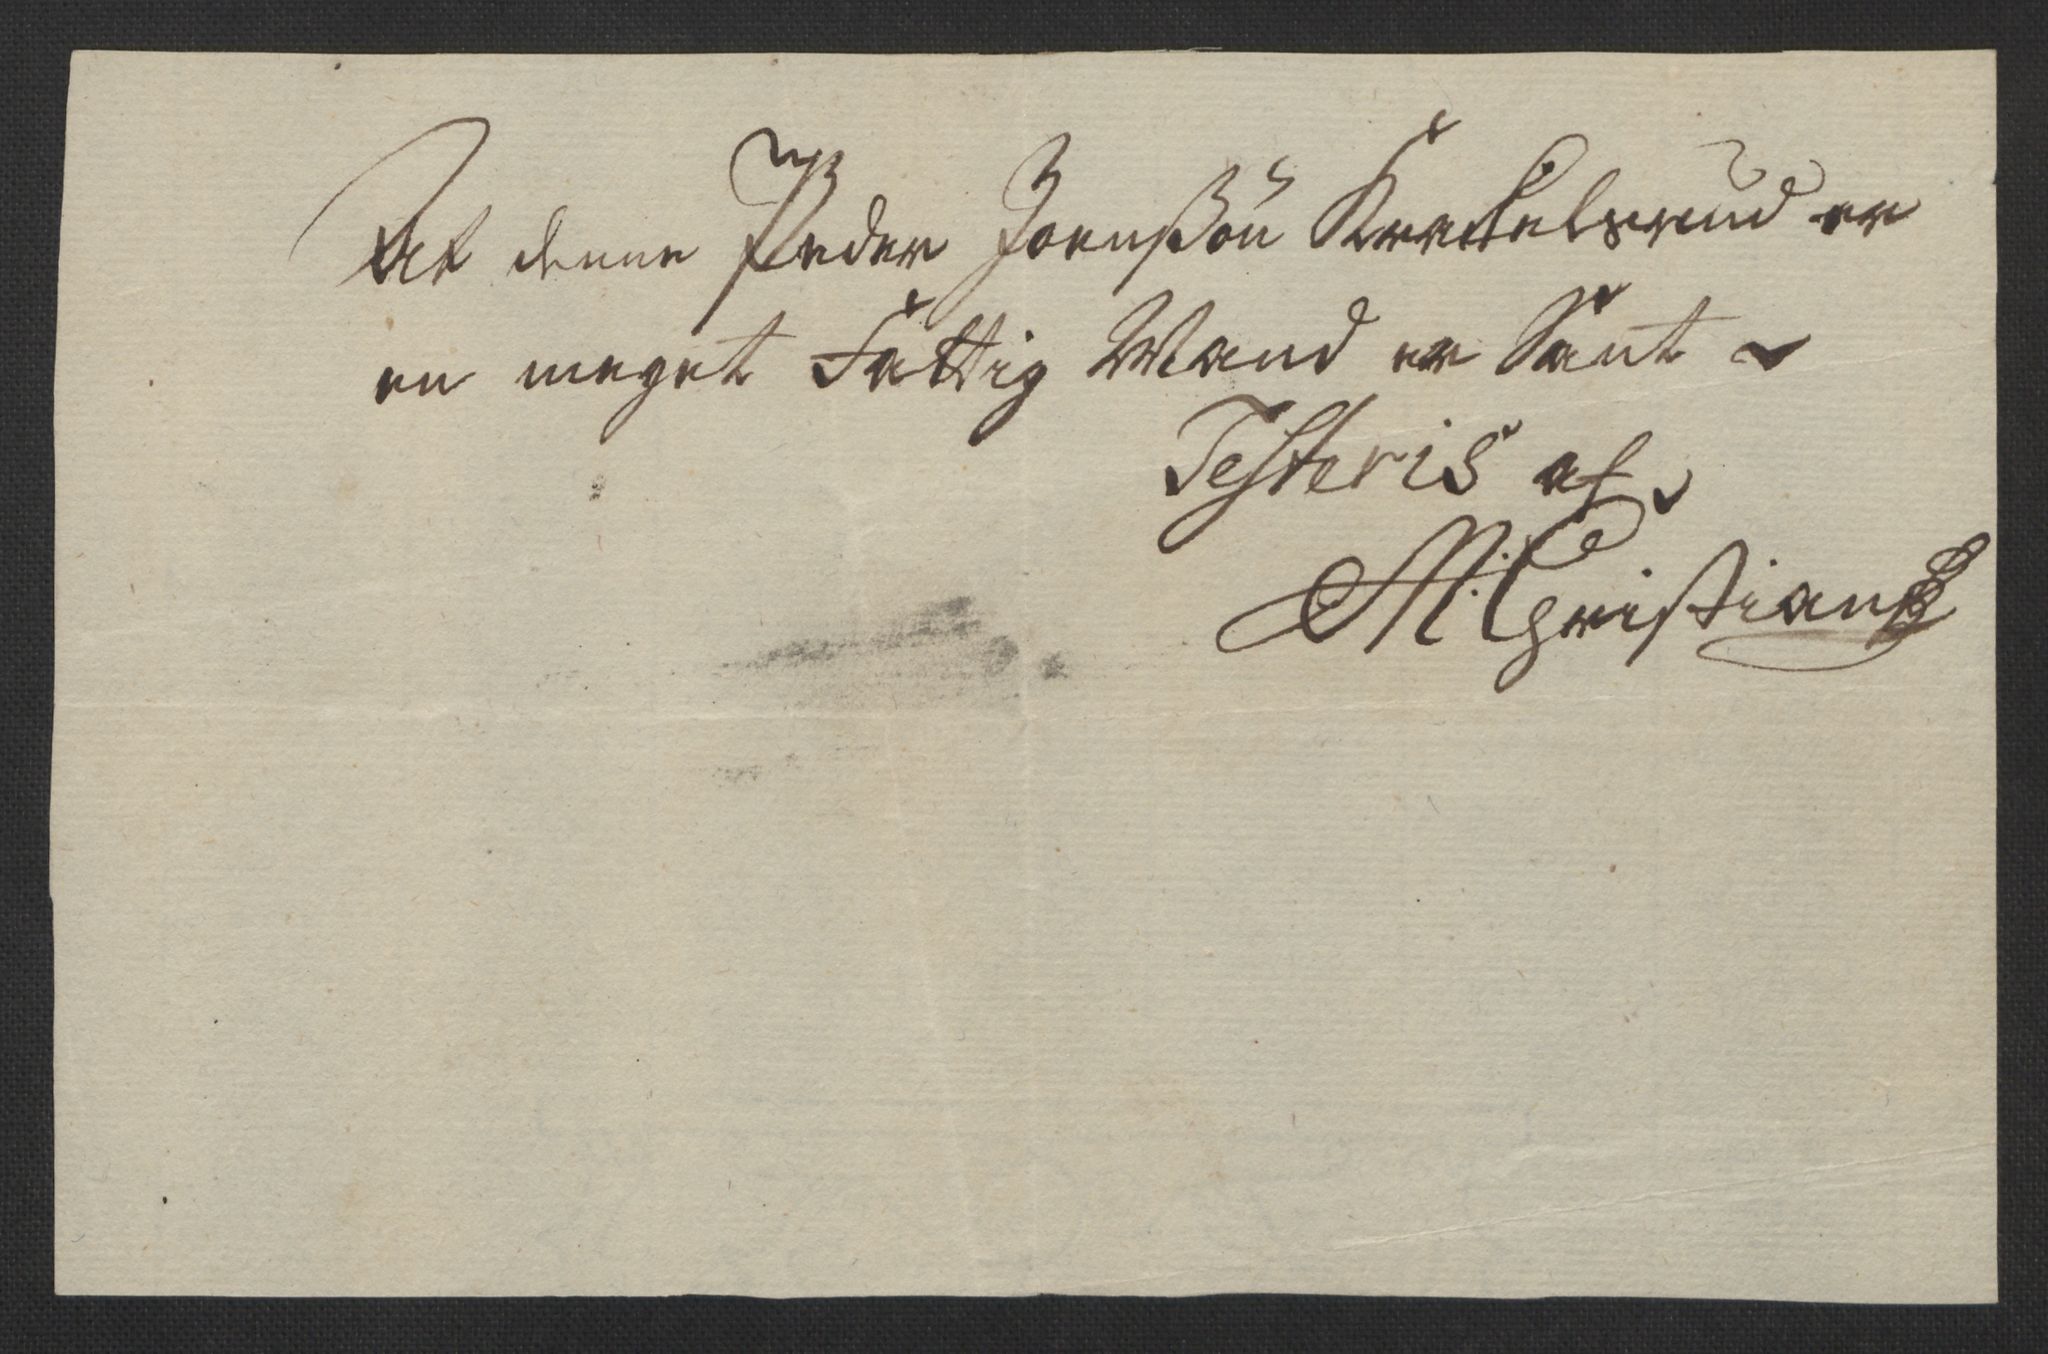 At denne Peder Joenßøn Krekelsrud er
en meget Fattig Mand er Sant
Testeris af
M: Christians